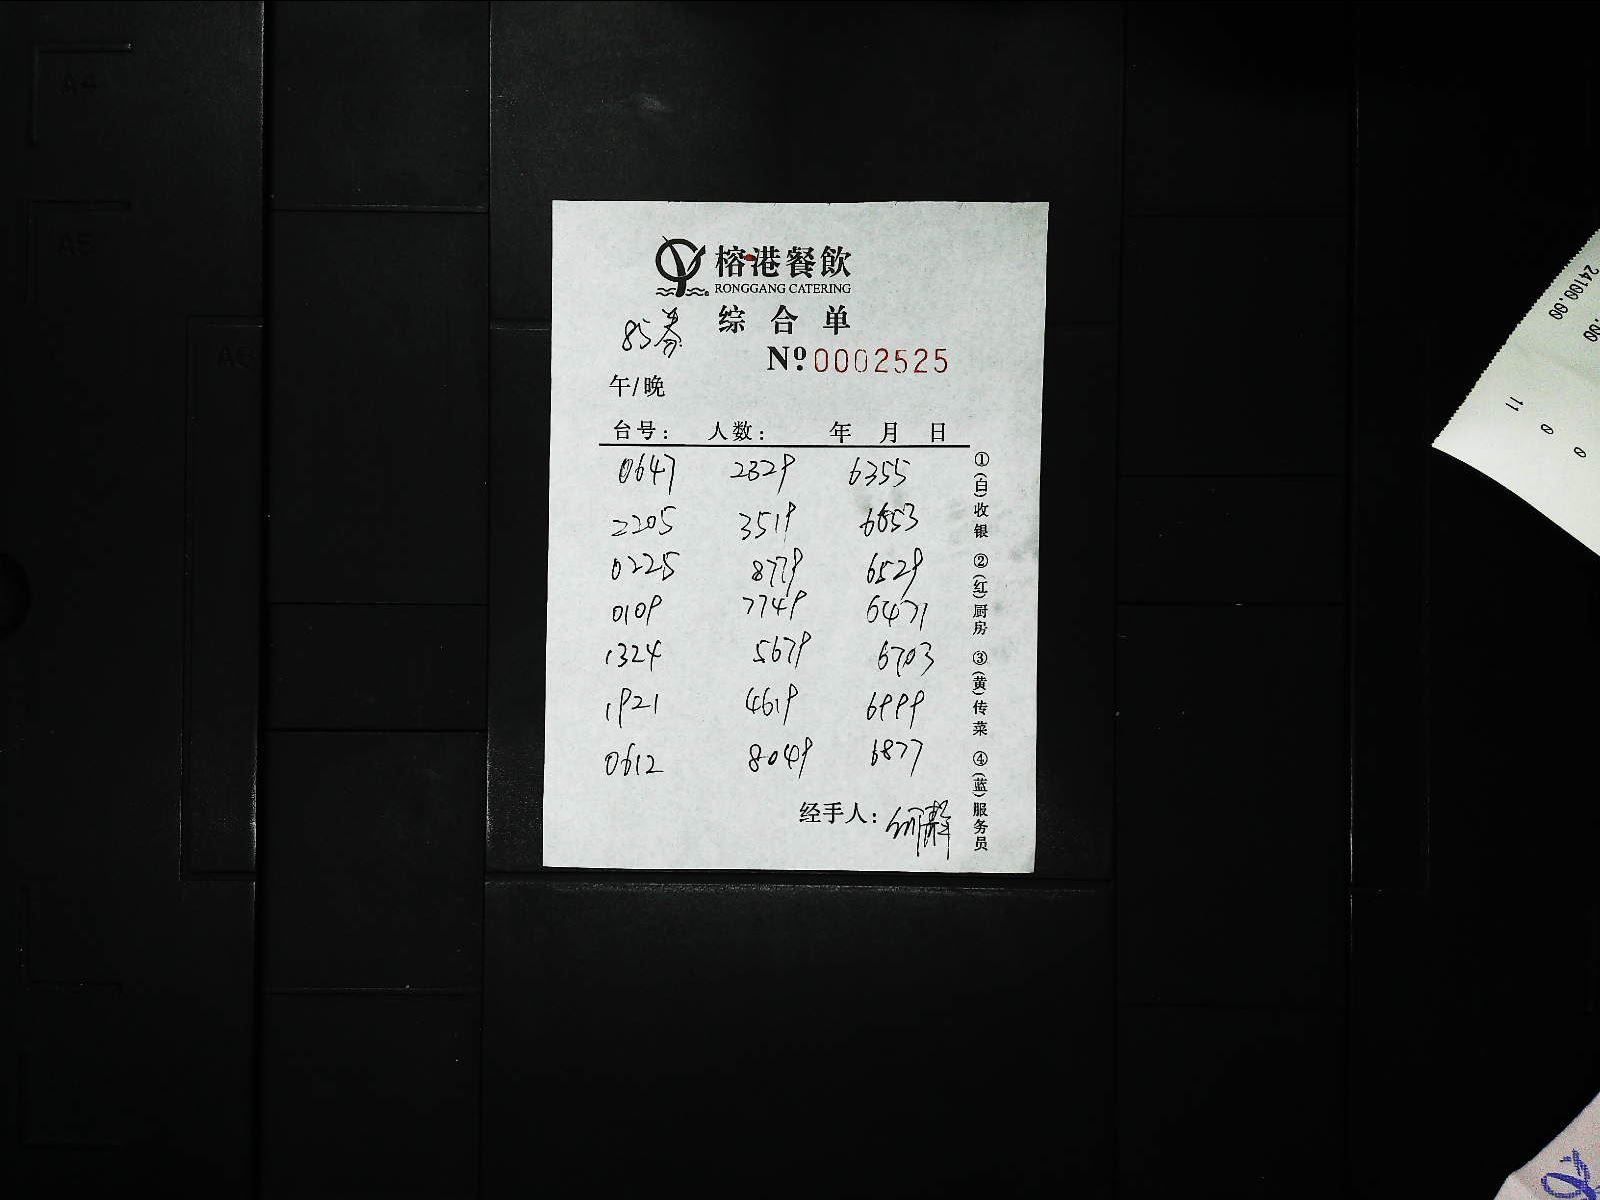 榕港餐飲
RONGGANG CATERING
综合单
85券
№:0002525
午/晚
台号: 人数: 年 月 日
0647 2329 6355
2205 3519 6853
0225 8779 6529
0109 7749 6471
1324 5679 6703
1921 4619 6999
0612 8049 6877
经手人:何静
①(白)收银 ②(红)厨房 ③(黄)传菜 ④(蓝)服务员
24100.00
.00
11 0 0
A4
A5